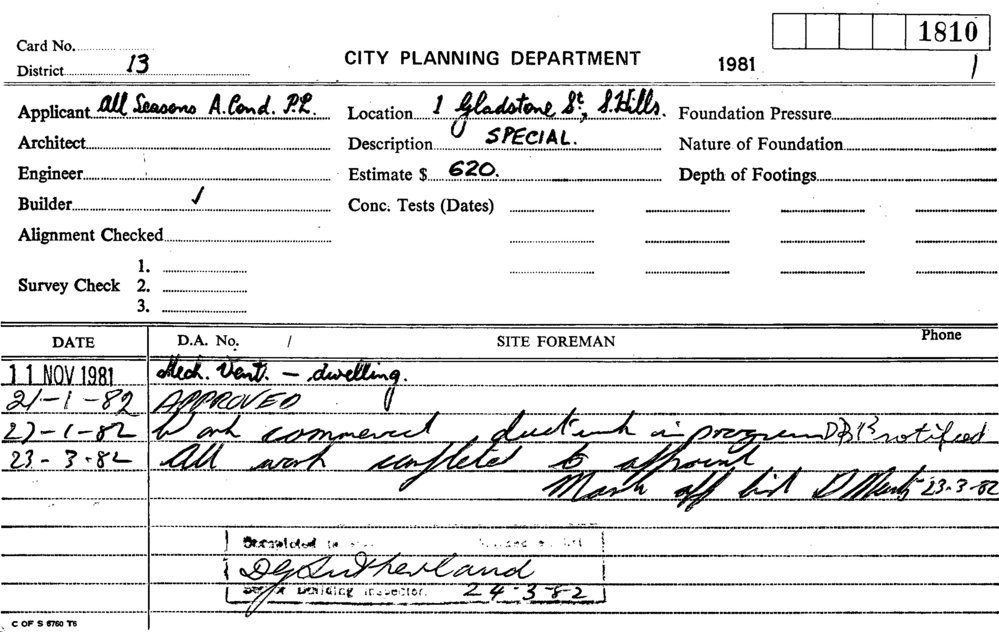 1810
Card No.
CITY PLANNING DEPARTMENT 1981 1
District 13
Applicant All Seasons A. Cond. P.L. Location 1 Gladstone St, S. Hills. Foundation Pressure
Architect Description SPECIAL. Nature of Foundation
Engineer Estimate $ 620. Depth of Footings
Builder ✓ Conc. Tests (Dates)
Alignment Checked
1.
Survey Check 2.
3.
DATE D.A. No. / SITE FOREMAN Phone
11 NOV 1981 Mech. Vent. – dwelling.
21-1-82 APPROVED
27-1-82 Work commenced ductwork in progress DBI notified
23-3-82 All work completed to approval
Mark off list D 23-3-82
Completed
DG Sutherland
Building Inspector. 24-3-82
C OF S 6760 T6